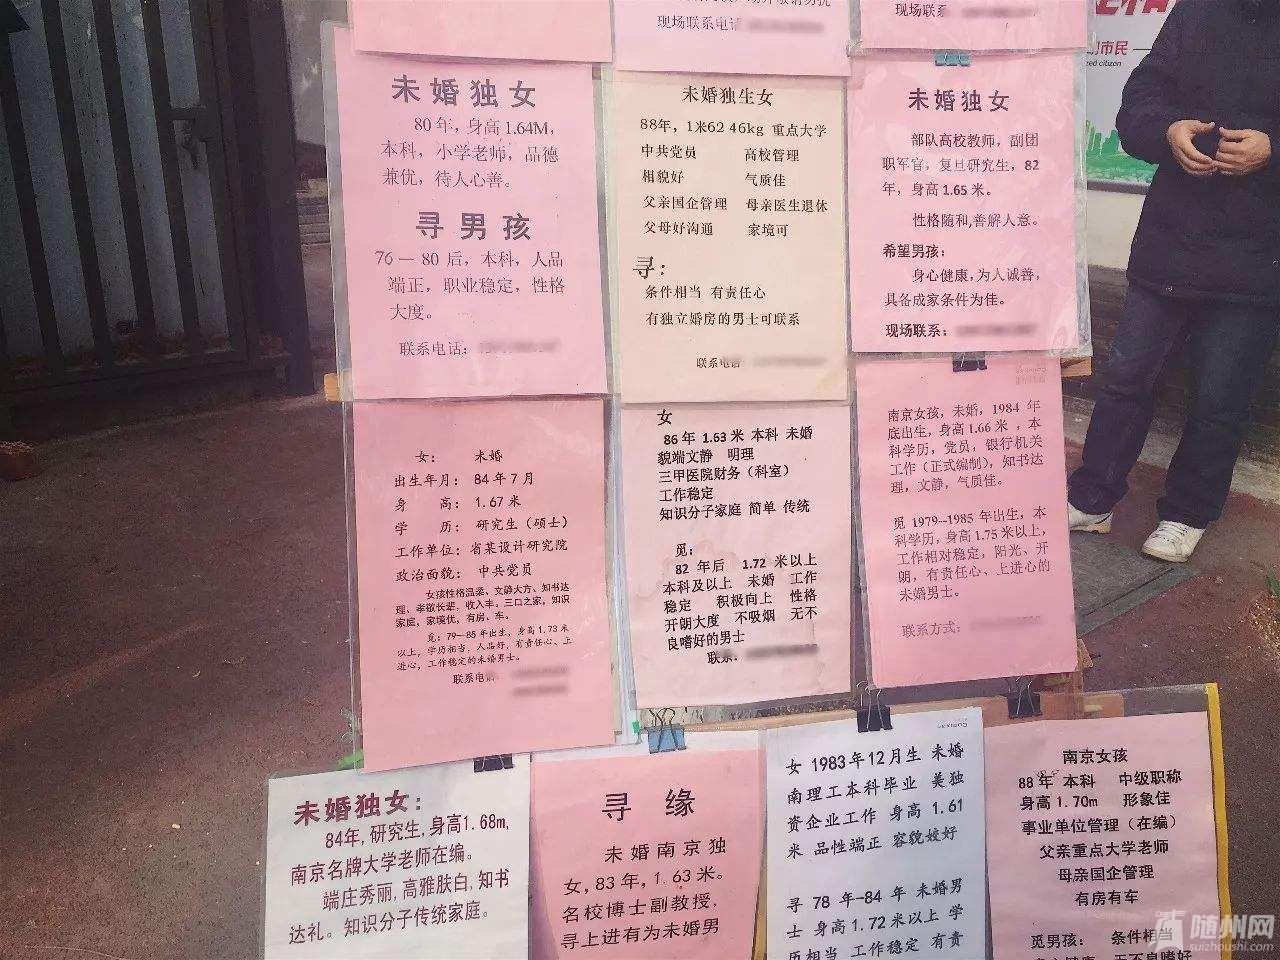 现场联系电话
现场联系
市民
ed citizen
未婚独女
80年，身高1.64M，
本科，小学老师，品德
兼优，待人心善。
寻男孩
76－80后，本科，人品
端正，职业稳定，性格
大度。
联系电话：
未婚独生女
88年，1米62 46kg 重点大学
中共党员 高校管理
相貌好 气质佳
父亲国企管理 母亲医生退休
父母好沟通 家境可
寻：
条件相当 有责任心
有独立婚房的男士可联系
联系电话
未婚独女
部队高校教师，副团
职军官，复旦研究生，82
年，身高1.65米。
性格随和,善解人意。
希望男孩：
身心健康，为人诚善，
具备成家条件为佳。
现场联系：
女： 未婚
出生年月： 84年7月
身 高： 1.67米
学 历： 研究生（硕士）
工作单位：省某设计研究院
政治面貌： 中共党员
女孩性格温柔、文静大方、知书达
理、孝敬长辈，收入丰。三口之家，知识
家庭，家境优，有房、车。
觅：79—85年出生，身高1.73米
以上，学历相当，人品好，有责任心、上
进心，工作稳定的未婚男士。
联系电话
女
86年 1.63米 本科 未婚
貌端文静 明理
三甲医院财务（科室）
工作稳定
知识分子家庭 简单 传统
觅：
82 年后 1.72 米以上
本科及以上 未婚 工作
稳定 积极向上 性格
开朗大度 不吸烟 无不
良嗜好的男士
联系：
南京女孩，未婚，1984 年
底出生，身高1.66米，本
科学历，党员，银行机关
工作（正式编制），知书达
理，文静，气质佳。
觅 1979--1985 年出生，本
科学历，身高1.75米以上，
工作相对稳定，阳光、开
朗，有责任心、上进心的
未婚男士。
联系方式：
未婚独女：
84年，研究生，身高1.68m，
南京名牌大学老师在编。
端庄秀丽，高雅肤白，知书
达礼。知识分子传统家庭。
寻 缘
未婚南京独
女，83年，1.63米。
名校博士副教授，
寻上进有为未婚男
女 1983年12月生 未婚
南理工本科毕业 美独
资企业工作 身高 1.61
米 品性端正 容貌姣好
寻 78 年-84 年 未婚男
士 身高1.72米以上 学
历相当 工作稳定 有责
南京女孩
88年 本科 中级职称
身高1.70m 形象佳
事业单位管理（在编）
父亲重点大学老师
母亲国企管理
有房有车
觅男孩： 条件相当
身心健康 无不良嗜好
随州网
suizhoushi.com